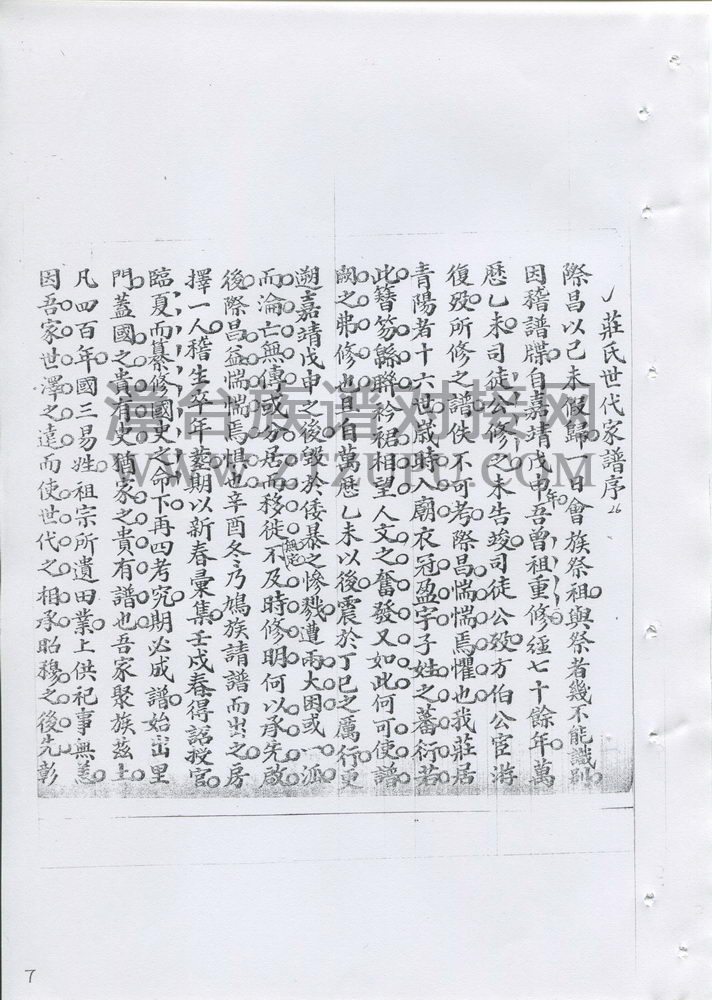 莊氏世代家譜序 26
際昌以己未假歸一日會族祭祖與祭者幾不能識別
因稽譜牒自嘉靖戊申年吾曾祖重修經七十餘年萬
歷乙未司徒公修之未告竣司徒公歿方伯公宦游
復歿所修之譜佚不可考際昌惴惴焉懼也我莊居
青陽者十六世歲時入廟衣冠盈宇子姓之蕃衍若
此簪笏緜聯衿裾相望人文之奮發又如此何可使譜
闕之弗修也且自萬歷乙未以後震於丁巳之厲行更
遡嘉靖戊申之後毀於倭暴之慘戮遭兩大困或一派
而淪亡無傳或分居而移徙無定不及時修明何以承先啟
後際昌益惴惴焉懼也辛酉冬乃鳩族請譜而出之房
擇一人稽生卒年塟期以新春彙集壬戌春得詔授官
臨夏而纂修國史之命下再四考究期必成譜始出里
門蓋國之貴有史猶家之貴有譜也吾家聚族茲土
凡四百年國三易姓祖宗所遺田業上供祀事無恙
因吾家世澤之遠而使世代之相承昭穆之後先彰
7
滇台族谱对接网
WWW.ZTZUPU.COM